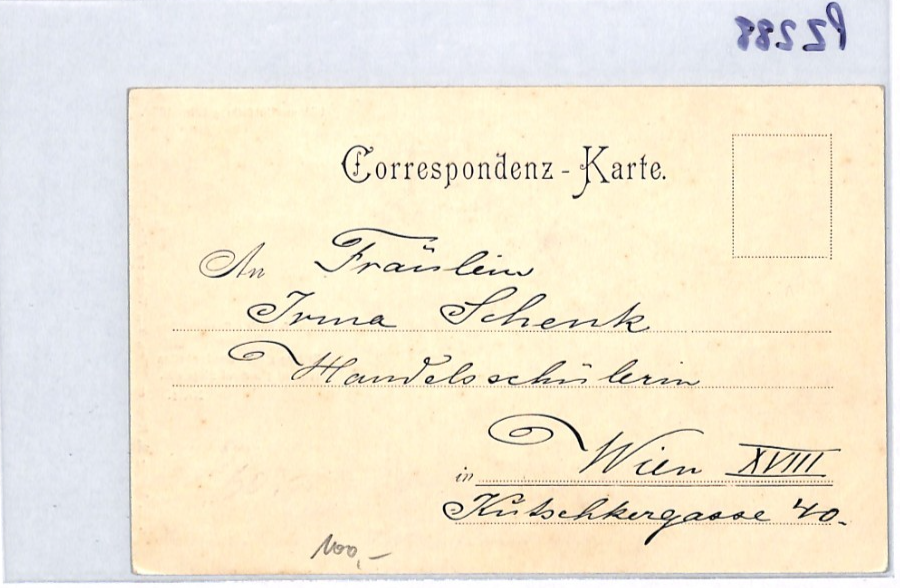 PZ288
Correspondenz-Karte.
An Fräulein
Irma Schenk
Handelsschülerin
in Wien XVIII
Kutschkergasse 40.
100,-